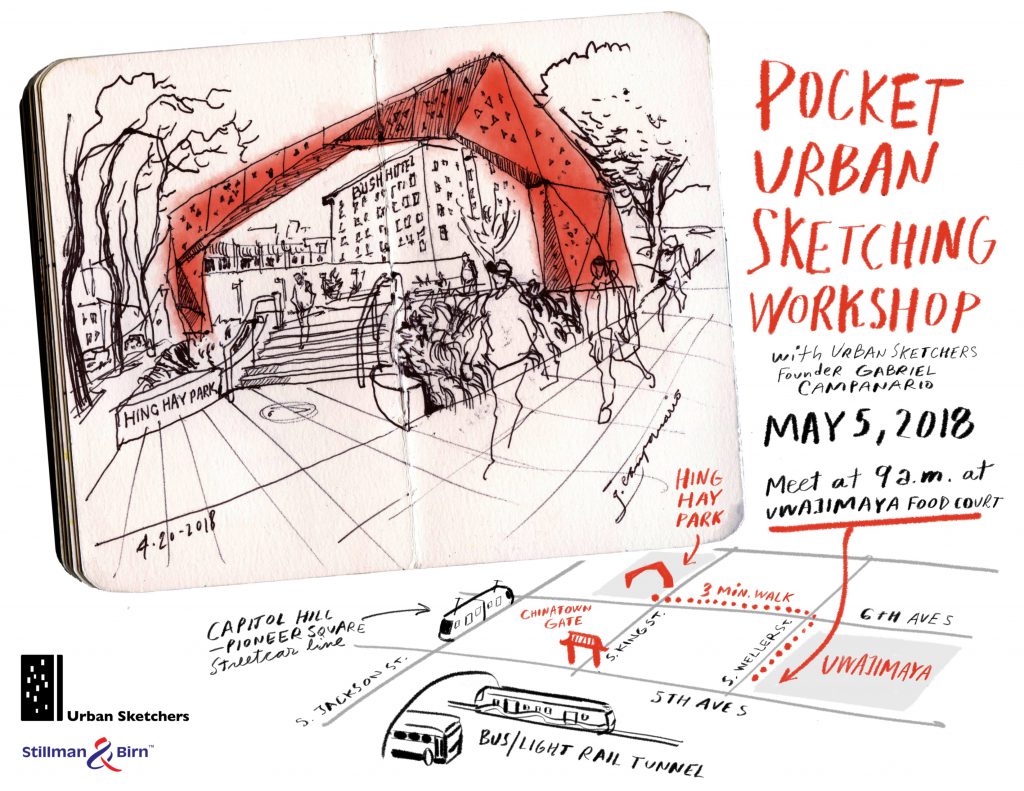 BUSH HOTEL
HING HAY PARK
4.20-2018
g. campanario
POCKET
URBAN
SKETCHING
WORKSHOP
with URBAN SKETCHERS
founder GABRIEL
CAMPANARIO
MAY 5, 2018
Meet at 9 a.m. at
UWAJIMAYA FOOD COURT
HING
HAY
PARK
3 MIN. WALK
6TH AVE S
CAPITOL HILL
-PIONEER SQUARE
Streetcar line
CHINATOWN
GATE
S. KING ST.
S. WELLER ST.
UWAJIMAYA
S. JACKSON ST.
5TH AVE S
BUS/LIGHT RAIL TUNNEL
Urban Sketchers
Stillman & Birn™